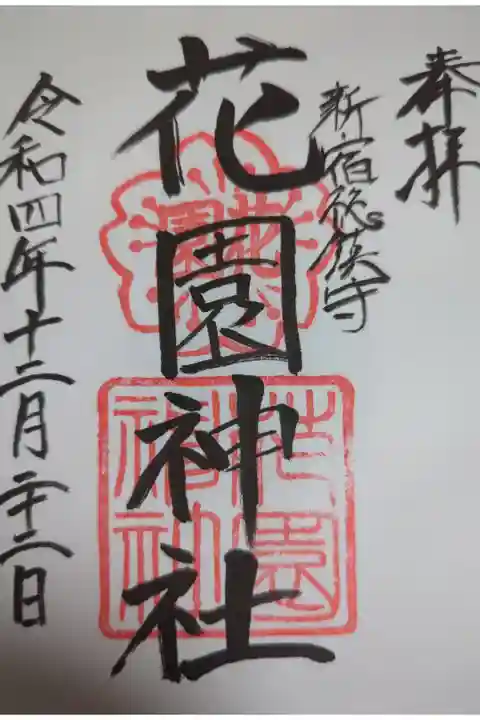 奉拝
新宿総鎮守
花園神社
令和四年十二月二十二日
花園
花園神社